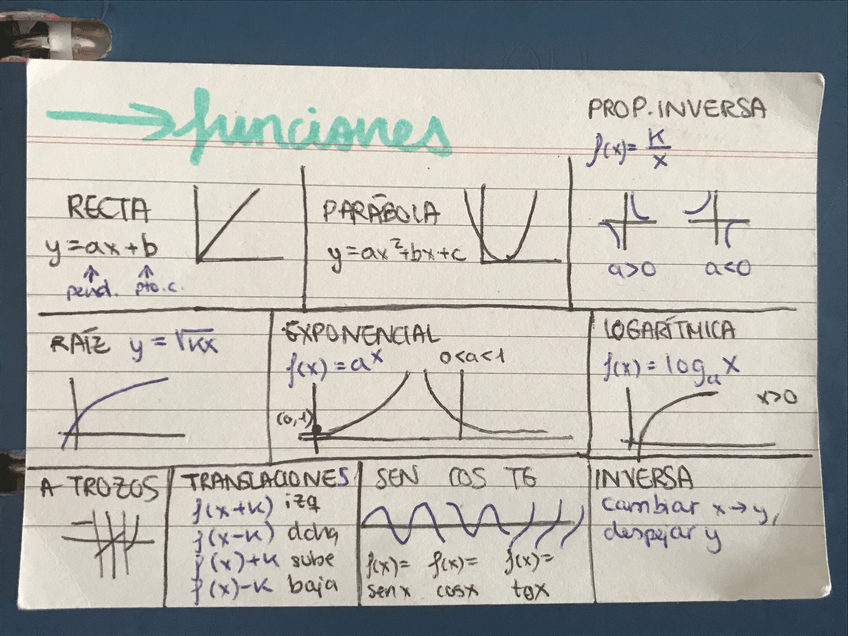 → funciones
PROP. INVERSA
f(x)= K/x
a>0 a<0
RECTA
y=ax+b
pend. pto.c.
PARÁBOLA
y=ax²+bx+c
RAÍZ y=√Kx
EXPONENCIAL
f(x)=aˣ 0<a<1
(0,1)
LOGARÍTMICA
f(x)=logₐx
x>0
A TROZOS
TRANSLACIONES
f(x+K) izq
f(x-K) dcha
f(x)+K sube
f(x)-K baja
SEN COS TG
f(x)= f(x)= f(x)=
senx cosx tgx
INVERSA
cambiar x→y,
despejar y